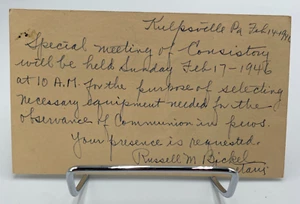 Kulpsville Pa Feb 14-1946
Special meeting of Consistory
will be held Sunday Feb 17-1946
at 10 A.M. for the purpose of selecting
necessary equipment needed for the
observance of Communion in pews.
Your presence is requested.
Russell M. Bickel